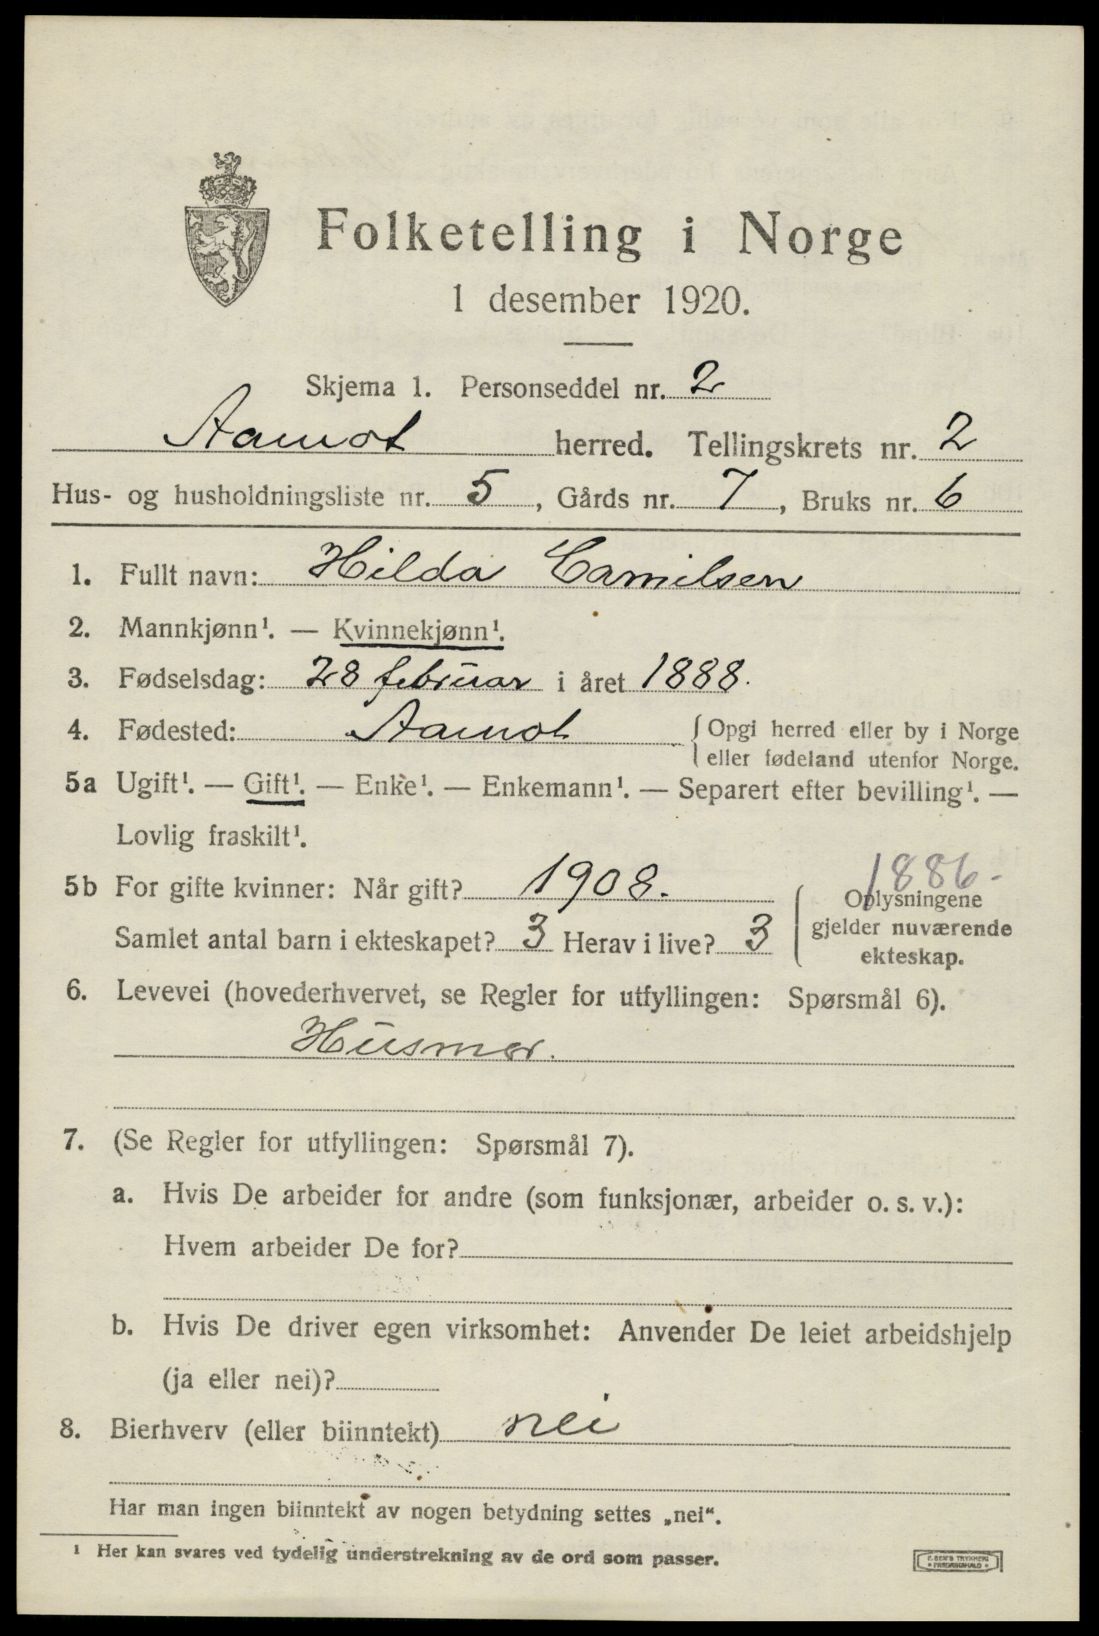 Folketelling i Norge
1 desember 1920.
Skjema 1. Personseddel nr. 2
Aamot herred. Tellingskrets nr. 2
Hus- og husholdningsliste nr. 5, Gårds nr. 7, Bruks nr. 6
1. Fullt navn: Hilda Camilsen
2. Mannkjønn¹. — Kvinnekjønn¹.
3. Fødselsdag: 28 februar i året 1888.
4. Fødested: Aamot { Opgi herred eller by i Norge
eller fødeland utenfor Norge.
5a Ugift¹. — Gift¹. — Enke¹. — Enkemann¹. — Separert efter bevilling¹. —
Lovlig fraskilt¹.
1886-
5b For gifte kvinner: Når gift? 1908.
Samlet antal barn i ekteskapet? 3 Herav i live? 3
Oplysningene
gjelder nuværende
ekteskap.
6. Levevei (hovederhvervet, se Regler for utfyllingen: Spørsmål 6).
Husmor.
7. (Se Regler for utfyllingen: Spørsmål 7).
a. Hvis De arbeider for andre (som funksjonær, arbeider o. s. v.):
Hvem arbeider De for?
b. Hvis De driver egen virksomhet: Anvender De leiet arbeidshjelp
(ja eller nei)?
8. Bierhverv (eller biinntekt) nei
Har man ingen biinntekt av nogen betydning settes „nei“.
¹ Her kan svares ved tydelig understrekning av de ord som passer.